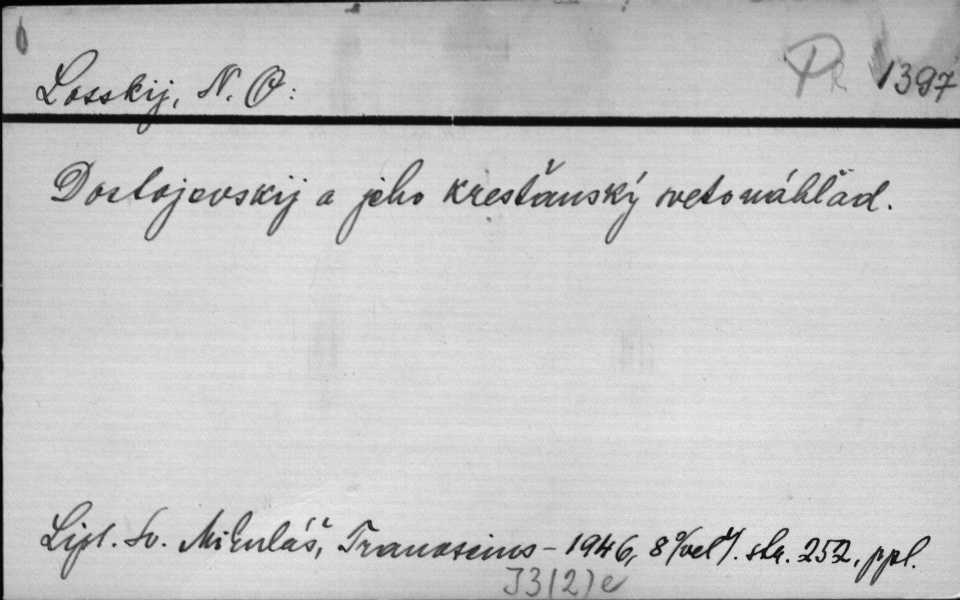 Losskij, N. O:
PR 1397
Dostojevskij a jeho kresťanský svetonáhľad.
Lipt. Sv. Mikuláš, Tranoscius - 1946, 8°/vel./. str. 252, ppl.
J3(2)e